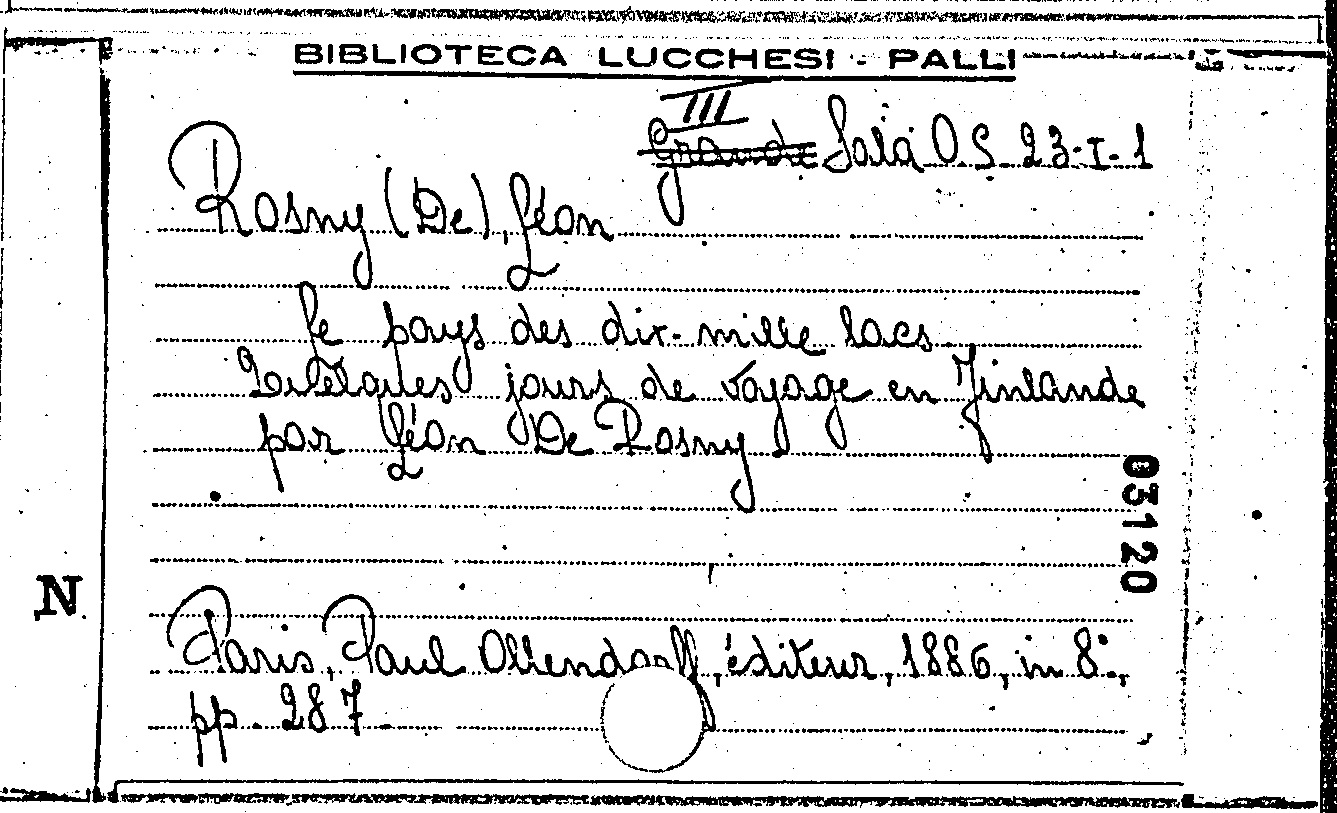 BIBLIOTECA LUCCHESI - PALLI
III
Grande Sala O.S. 23-I-1
Rosny (De), Léon
Le pays des dix-mille lacs.
Quelques jours de voyage en Finlande
par Léon De Rosny
03120
N
Paris, Paul Ollendorff, éditeur, 1886, in 8°,
pp. 287.